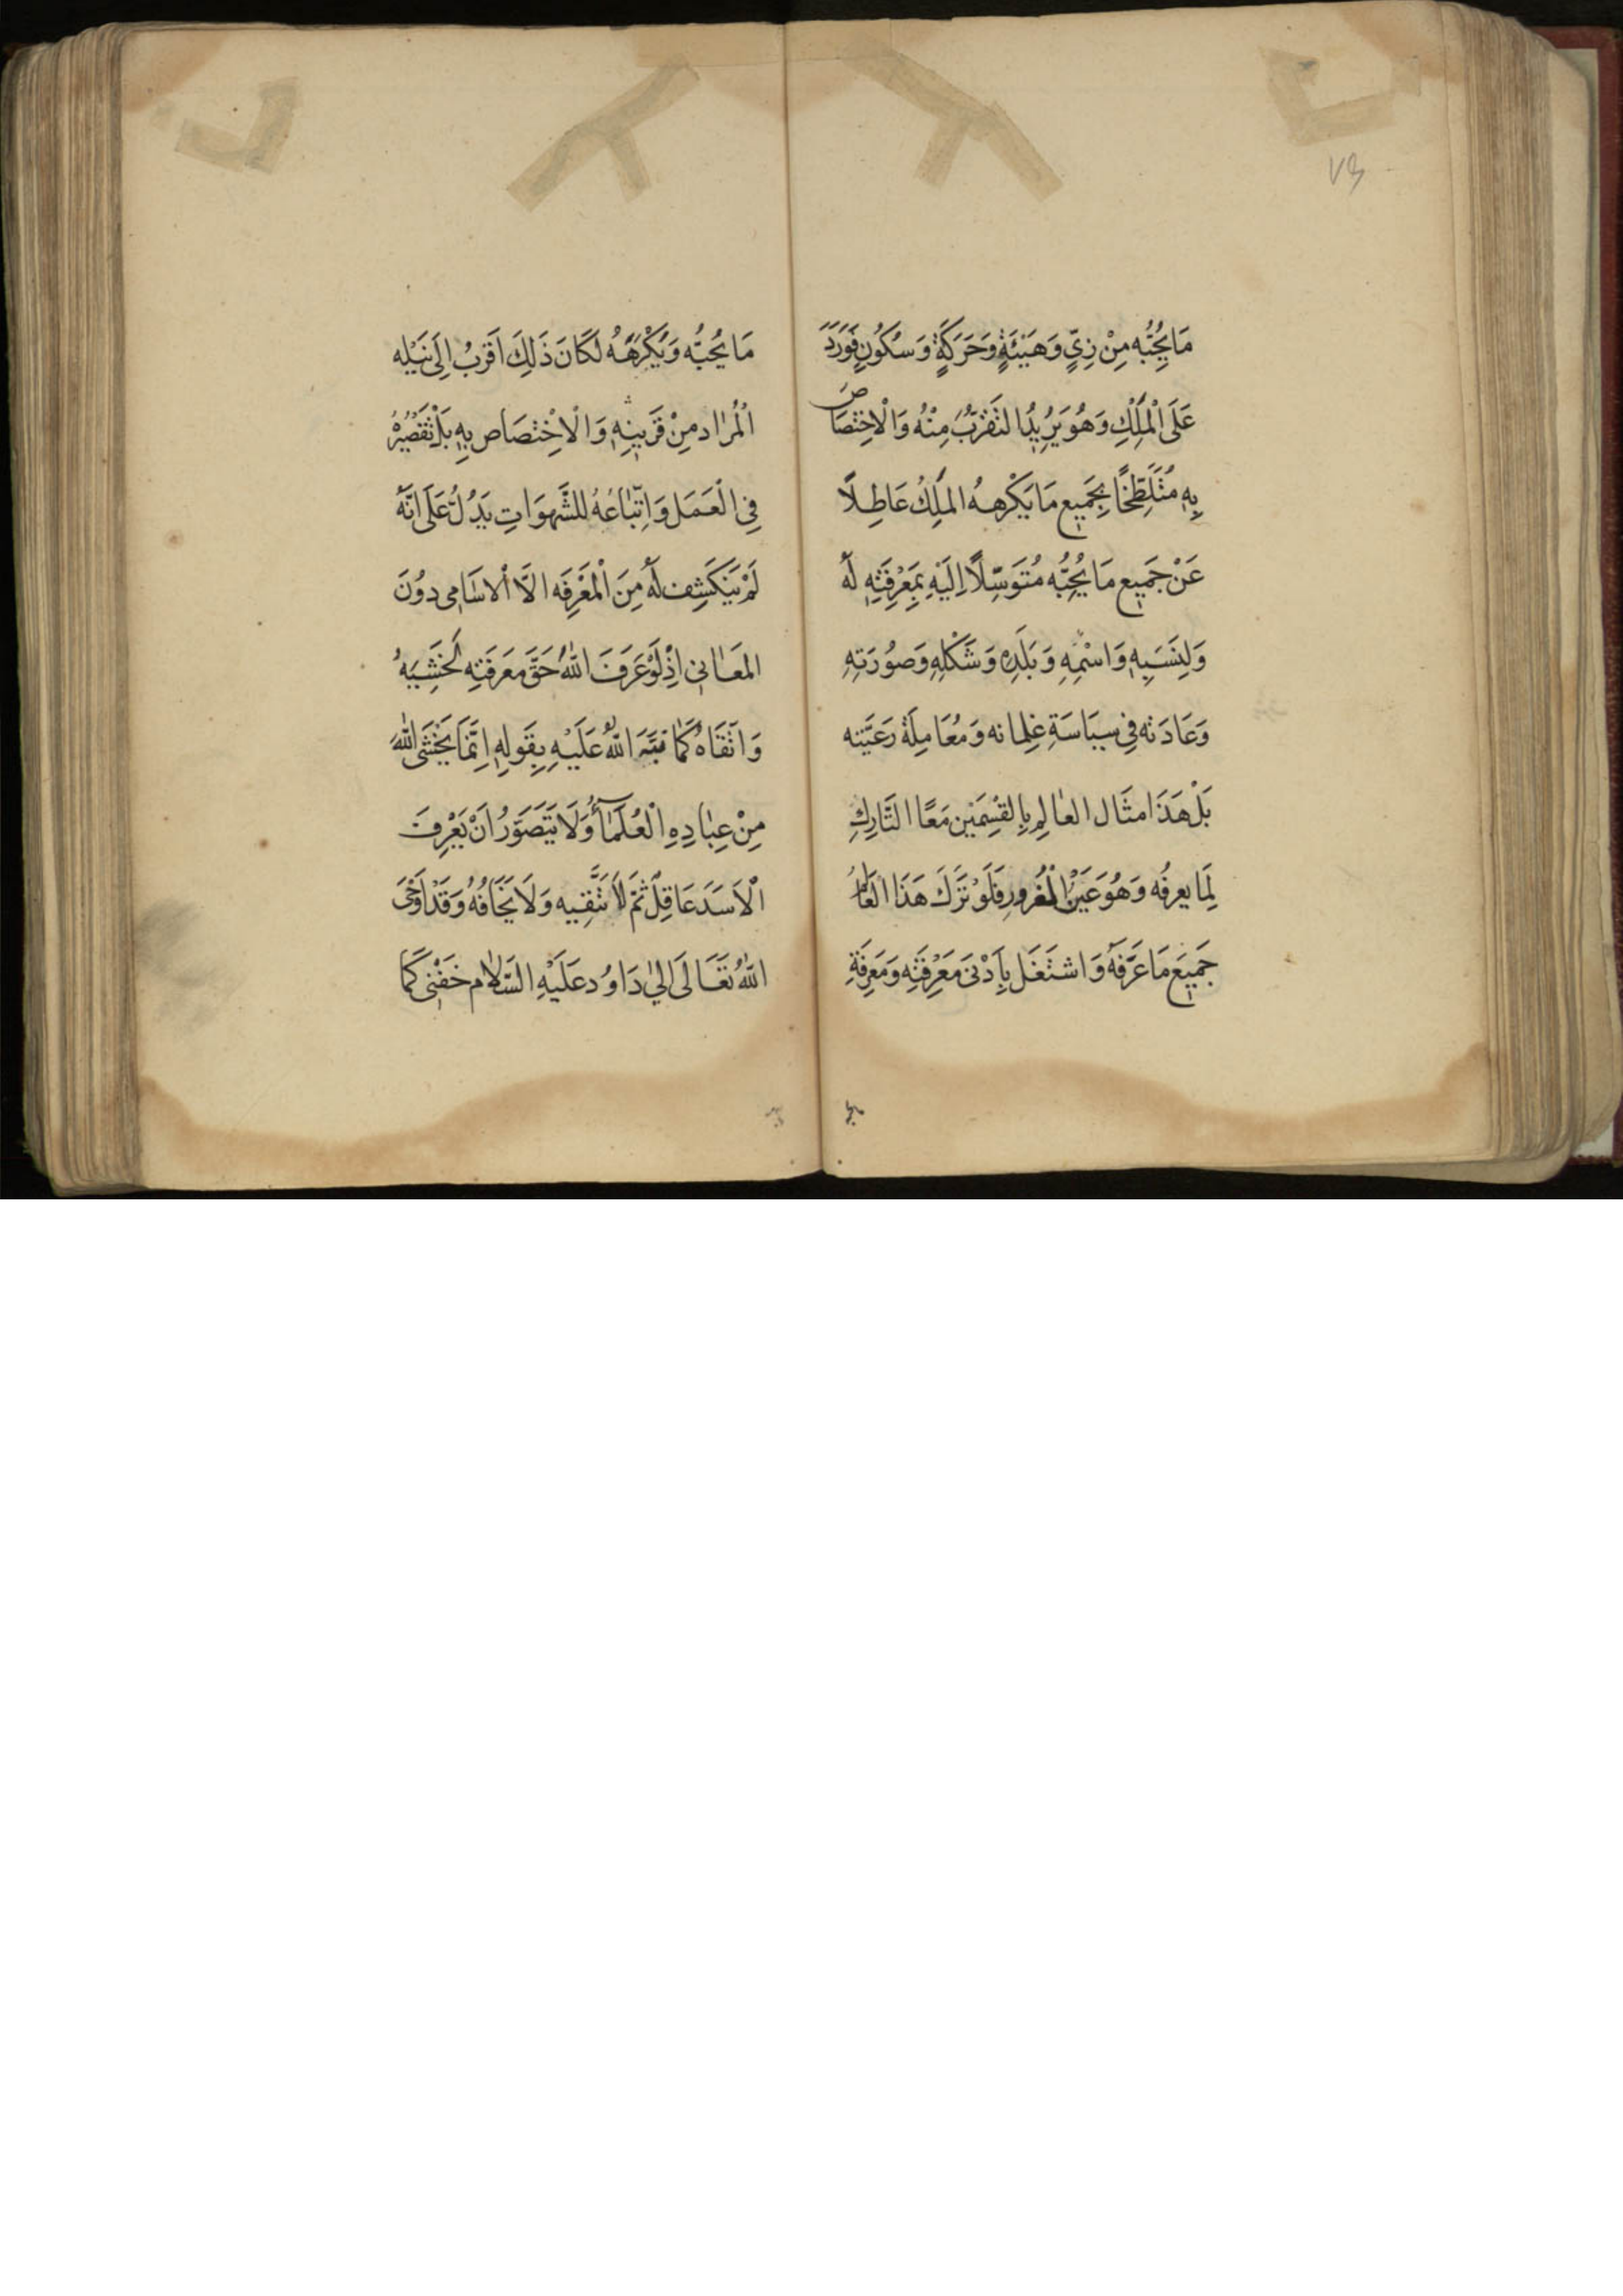 ٧٣
مَا يُحِبُّه مِنْ زِيٍّ وَهَيْئَةٍ وَحَرَكَةٍ وَسُكُونٍ فَوَرَدَ
عَلَى الْمَلِكِ وَهُوَ يُرِيدُ التَقَرُّبَ مِنْهُ وَالْاِخْتِصَاصَ
بِهِ مُتَلَطِّخًا بِجَمِيعِ مَا يَكْرَهُهُ المَلِكُ عَاطِلًا
عَنْ جَمِيعِ مَا يُحِبُّه مُتَوَسِّلًا اِلَيْهِ بِمَعْرِفَتِهِ لَهُ
وَلِنَسَبِهِ وَاسْمِهِ وَبَلَدِهِ وَشَكْلِهِ وَصُورَتِهِ
وَعَادَتِه فِي سِيَاسَةِ غِلمانه وَمُعَامَلَة رَعِيَّتِه
بَلْ هَذَا مثَال العَالِمِ بِالقِسْمَيْنِ مَعًا التَّارِكِ
لِمَا يعرفُه وَهُوَ عَيْنُ الْمغُرور فَلَوْ تَرَكَ هَذَا العَالِمُ
جَمِيعَ مَا عَرَّفَهُ وَاشتَغَل بِاَدْنَى مَعْرِفَتِه وَمَعرِفَةِ
مَا يُحِبُّه وَيُكْرَهُهُ لَكَانَ ذَلِكَ اَقرَبُ اِلَى نَيْلِه
الْمُرَاد مِنْ قَرِبِيهِ وَالْاِخْتِصَاص بِهِ بَلْ تَقْصِيُرهُ
فِي الْعَمَل وَاِتِّبَاعُهُ للشَّهوَاتِ يَدُلُّ عَلَى اَنَّهُ
لَمْ يَنكَشِف لَهُ مِنَ الْمَعْرِفَه اِلَّا الْاسَامِى دُونَ
المَعَانِي اِذْ لَوْ عَرَفَ اللّٰهَ حَقَّ مَعرَفَتِه لَخَشِيَهُ
وَاتَّقَاهُ كَمَا نبَّهَ اللّٰهُ عَلَيْهِ بِقَولِهِ اِنَّمَا يَخْشَى اللّٰهَ
مِنْ عِبَادِهِ الْعُلَمَآءُ وَلَا يَتَصَوَّرُ اَنْ يَعْرِفَ
الْاَسَدَ عَاقِلٌ ثمَّ لَا يَتَّقِيه وَلَا يَخَافُهُ وَقَدْ اَوحَى
اللّٰهُ تَعَالَى اِلىٰ دَاوُد عَلَيْهِ السَّلَام خَفْنِى كَمَا